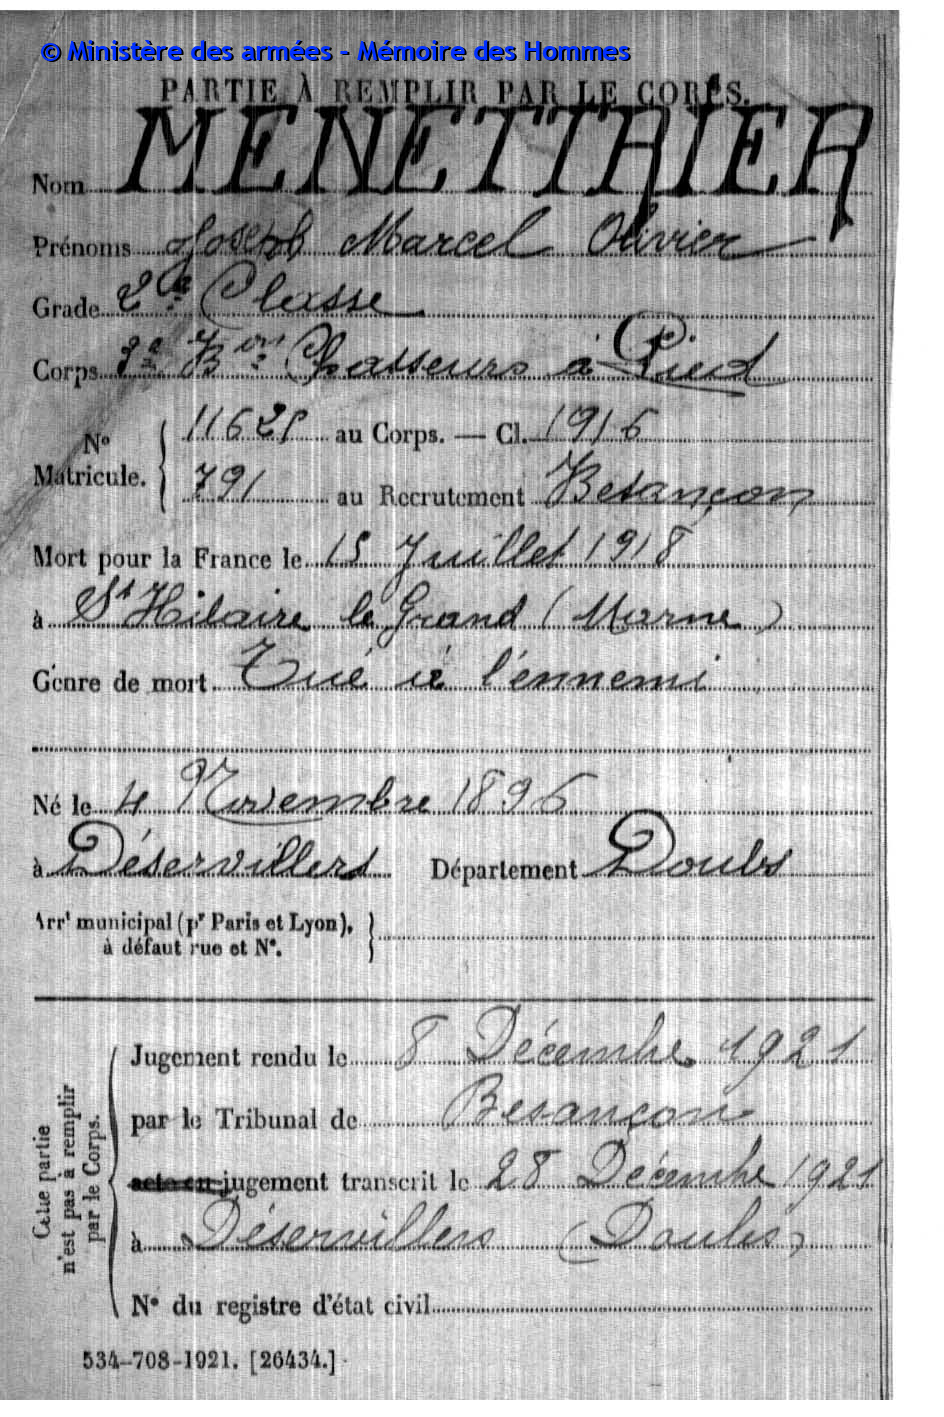 © Ministère des armées - Mémoire des Hommes
PARTIE À REMPLIR PAR LE CORPS.
Nom MENETTRIER
Prénoms Joseph Marcel Olivier
Grade 2e Classe
Corps 3e Bon Chasseurs à Pied
N° Matricule. { 11625 au Corps. — Cl. 1916
791 au Recrutement Besançon
Mort pour la France le 15 Juillet 1918
à St Hilaire le Grand (Marne)
Genre de mort Tué à l'ennemi
Né le 4 Novembre 1896
à Déservillers Département Doubs
Arrt municipal (pr Paris et Lyon),
à défaut rue et N°.
Cette partie n'est pas à remplir par le Corps.
Jugement rendu le 8 Décembre 1921
par le Tribunal de Besançon
acte ou jugement transcrit le 28 Décembre 1921
à Déservillers (Doubs)
N° du registre d'état civil
534-708-1921. [26434.]